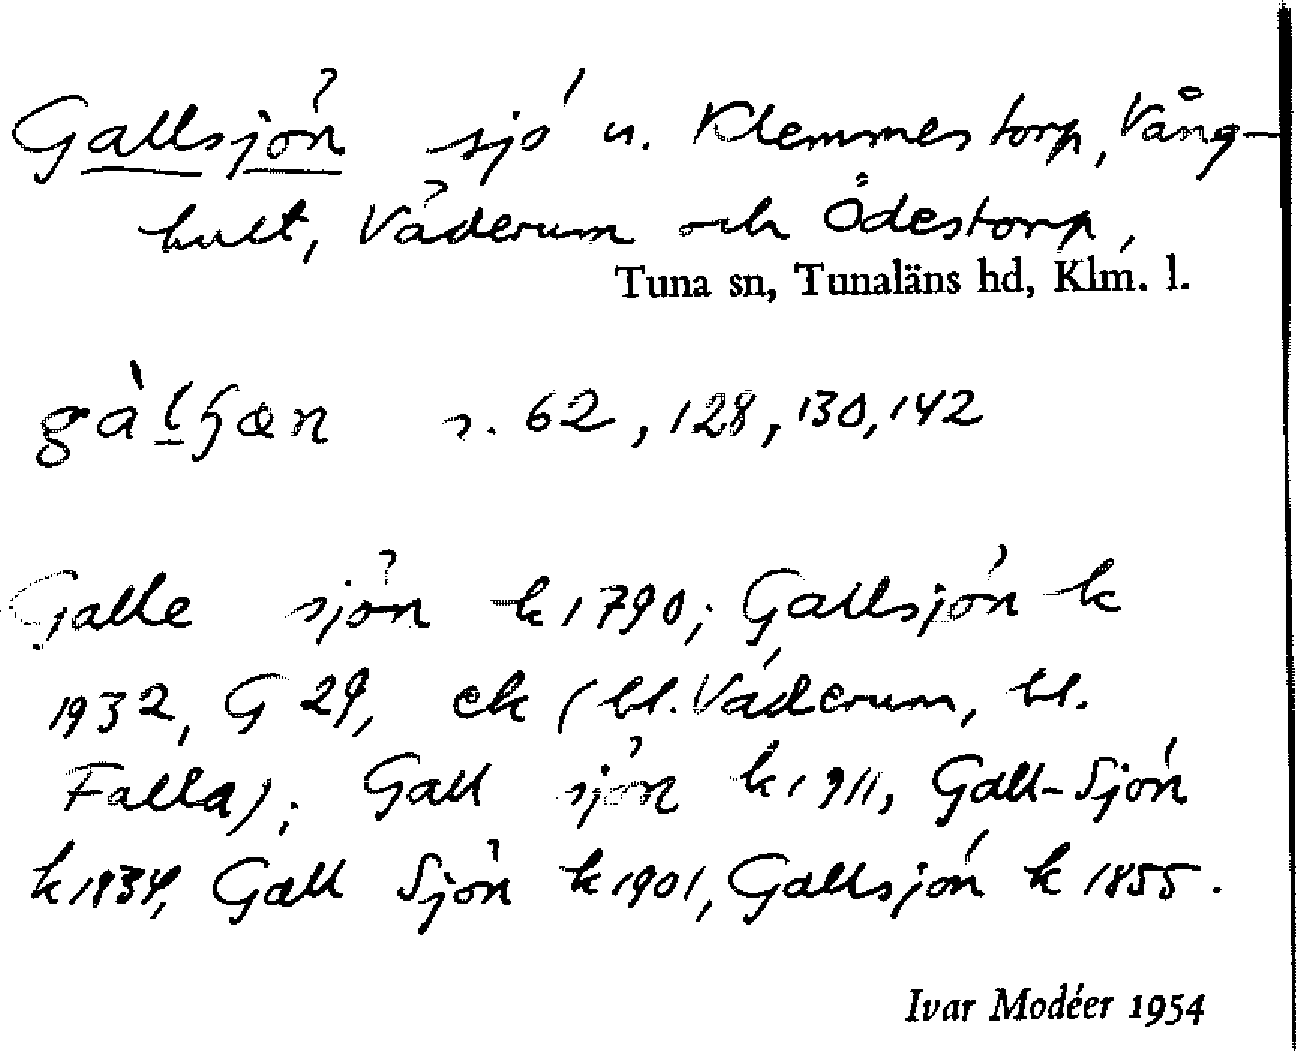 Gallsjön sjö u. Klemmestorp, Vång-
hult, Väderum och Ödestorp,
Tuna sn, Tunaläns hd, Klm. l.
s. 62, 128, 130, 142
Galle sjön k 1790; Gallsjön k
1932, G 29, ek (bl. Väderum, bl.
Falla); Gall sjön k 1911, Gall-Sjön
k 1934, Gall Sjön k 1901, Gallsjön k 1855.
Ivar Modéer 1954